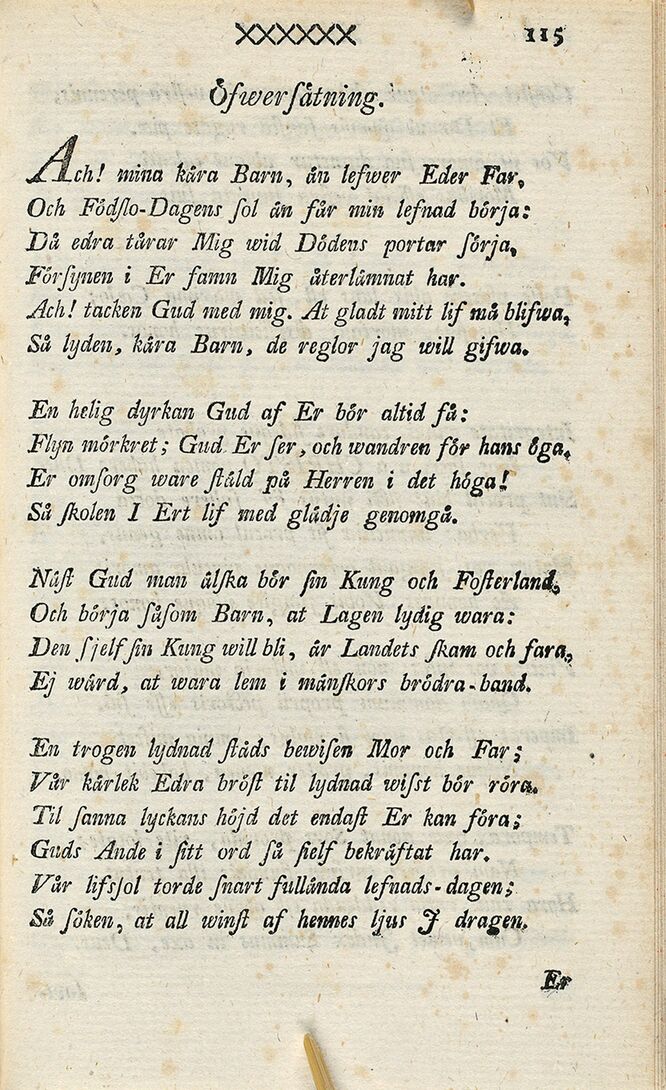 XXXXXX 115
Öfwersåtning.
Ach! mina kåra Barn, ån lefwer Eder Far,
Och Födslo-Dagens sol ån får min lefnad börja:
Då edra tårar Mig wid Dödens portar sörja,
Försynen i Er famn Mig återlåmnat har.
Ach! tacken Gud med mig. At gladt mitt lif må blifwa,
Så lyden, kåra Barn, de reglor jag will gifwa.
En helig dyrkan Gud af Er bör altid få:
Flyn mörkret; Gud Er ser, och wandren för hans öga,
Er omsorg ware ståld på Herren i det höga!
Så skolen I Ert lif med glådje genomgå.
Nåst Gud man ålska bör sin Kung och Fosterland,
Och börja såsom Barn, at Lagen lydig wara:
Den sjelf sin Kung will bli, år Landets skam och fara,
Ej wård, at wara lem i månskors brödra-band.
En trogen lydnad ståds bewisen Mor och Far;
Vår kårlek Edra bröst til lydnad wisst bör röra.
Til sanna lyckans höjd det endast Er kan föra;
Guds Ande i sitt ord så sielf bekråftat har.
Vår lifssol torde snart fullånda lefnads-dagen;
Så söken, at all winst af hennes ljus J dragen.
Er